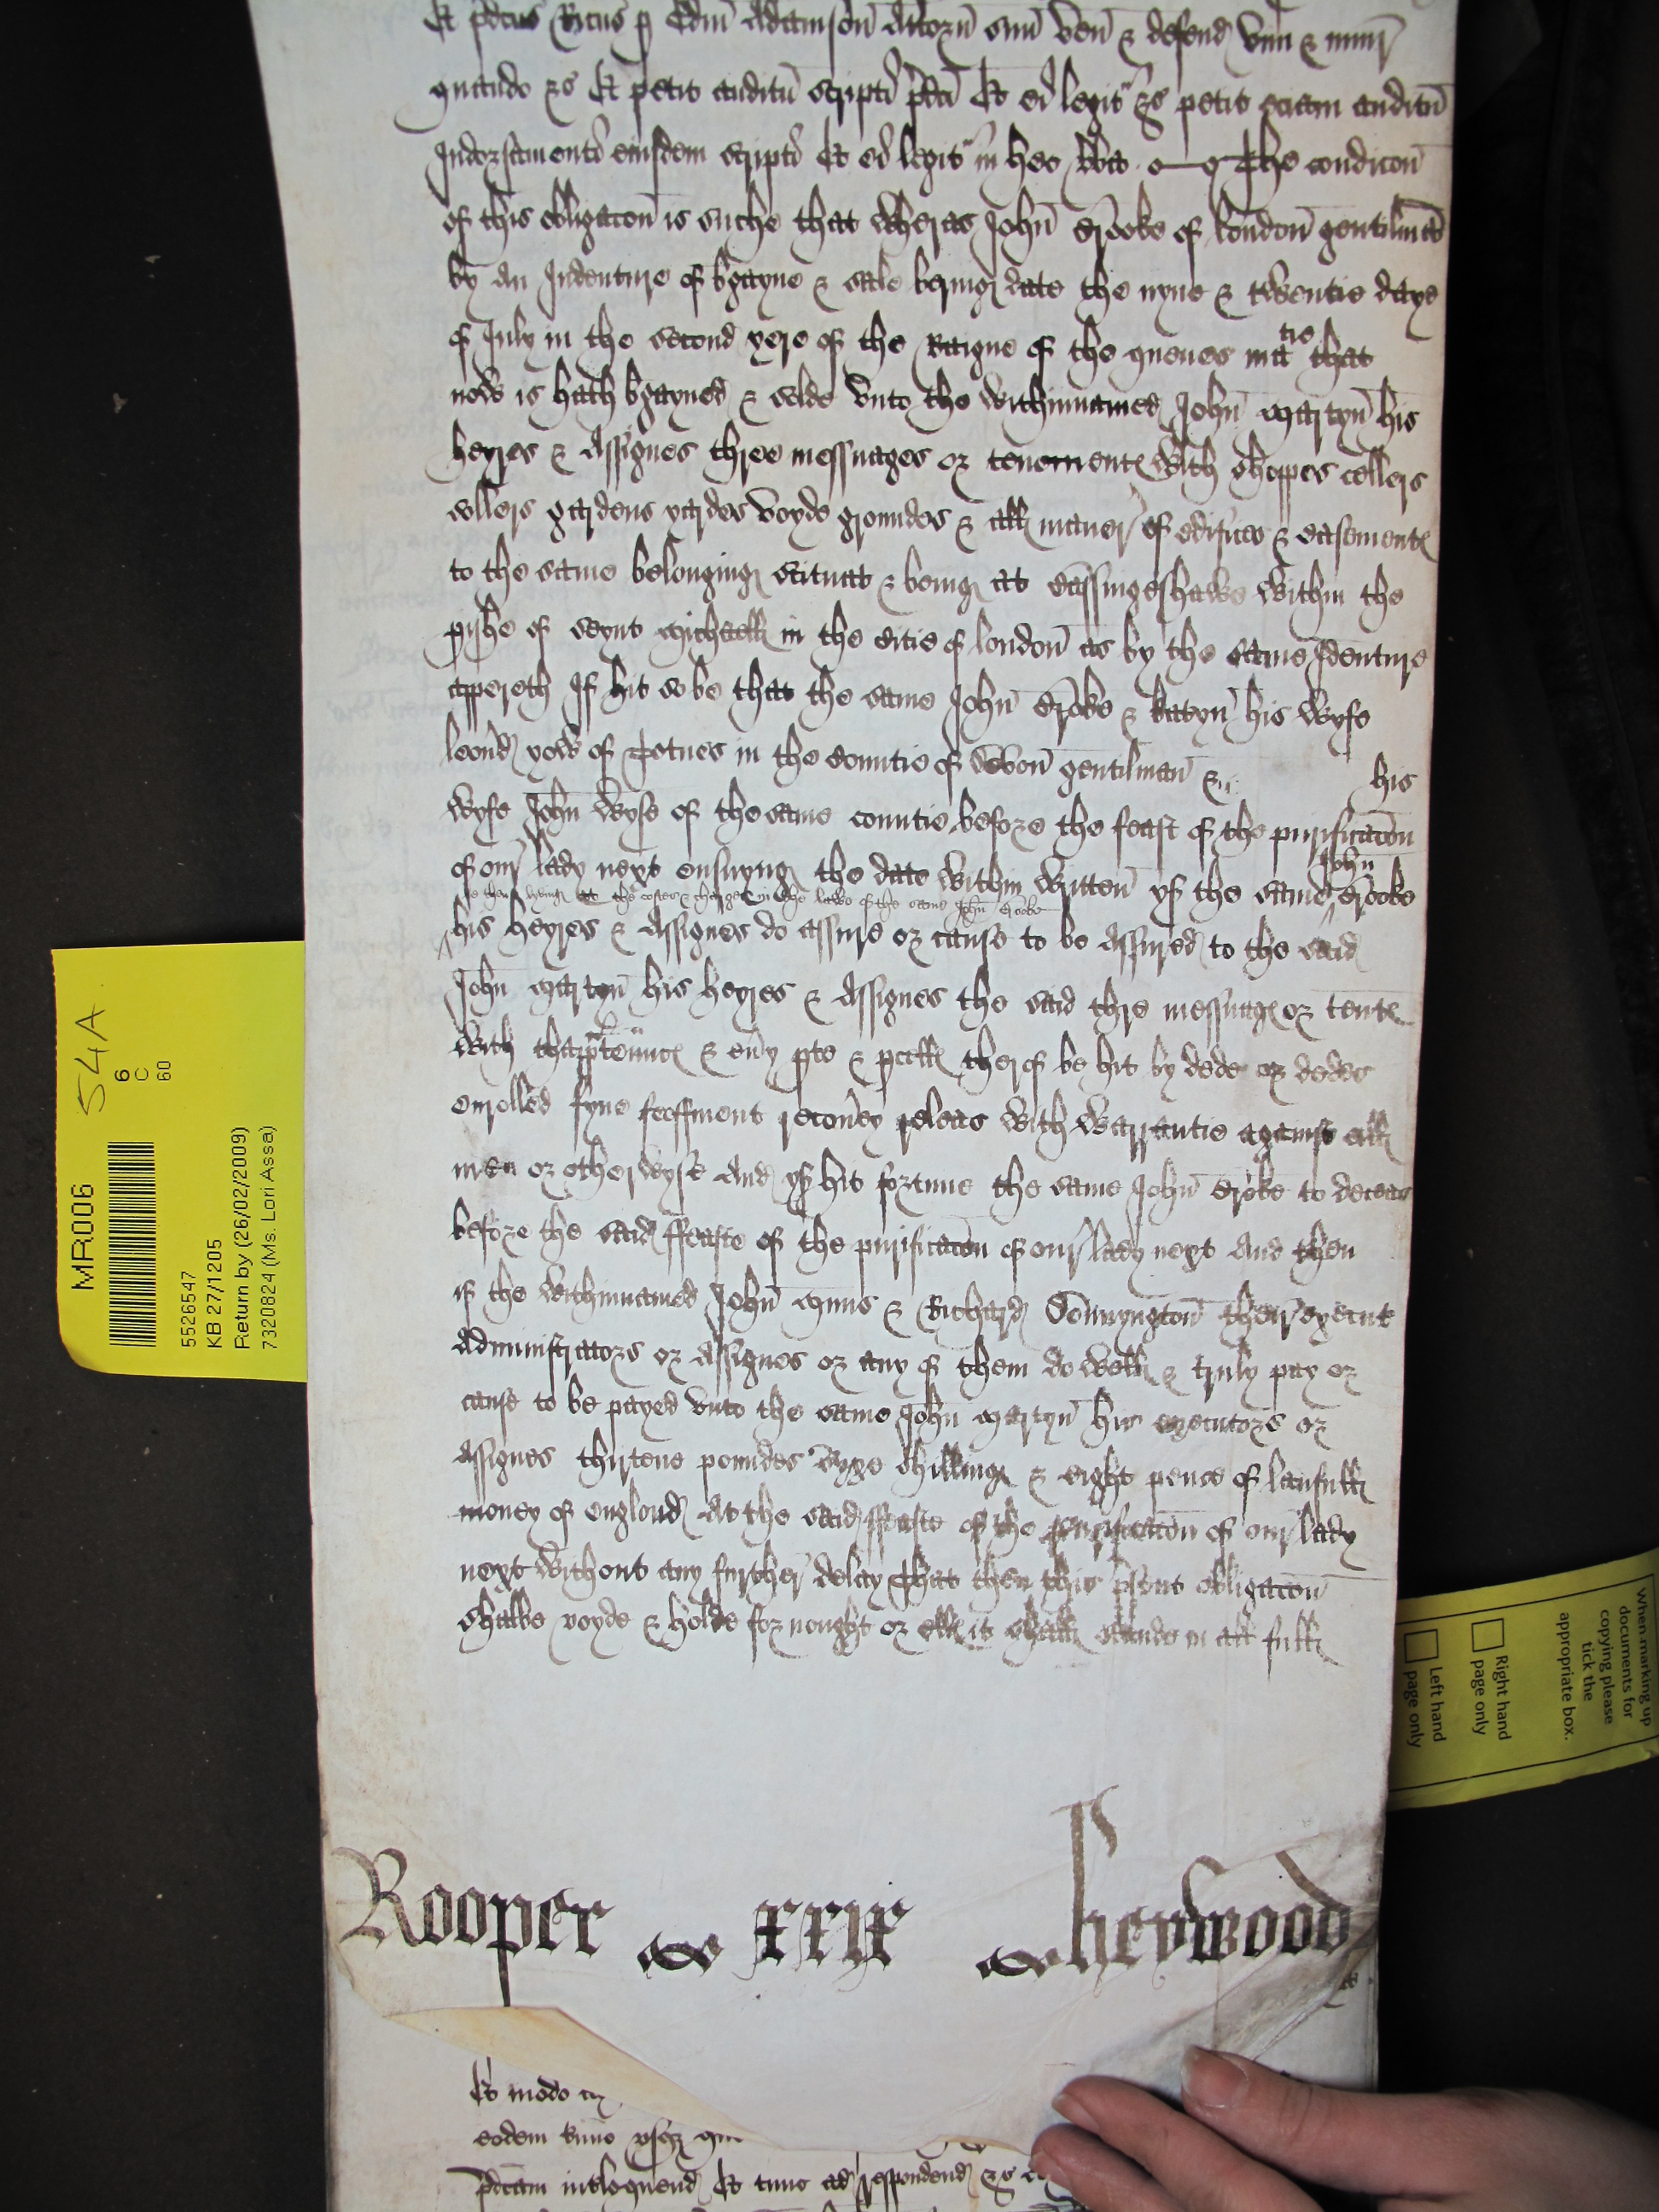 Et p̄dcus Ricus p Edm̄ Adamson̄ Attorn̄ suū ven̄ & defend vim & iniur̄
quando &c Et petit auditū scripti p̄dci Et ei legit̄ &c petit eciam auditū
Indorsamenti eiusdem scripti Et ei legit̄ in hec v̄ba The condicon̄
of this obligacon̄ is suche that wheras John̄ Croke of london̄ gentilman̄
by an Indenture of bgayne & sale beringe date the nyne & twentie daye
of July in the second yere of the Raigne of the quenes matie that
now is hath bgayned & solde vnto the withinnamed John̄ Martyn̄ his
heyres & Assignes three messuages or tenementes with shoppes cellers
sollers gardens yardes voyde groundes & all maner̄ of edifices & easementes
to the same belonginge scituat & beinge at Bassingeshawe within the
pishe of seynt Michaell in the citie of london̄ as by the same Identure
appereth If hit so be that the same John̄ Croke & Katyn̄ his wyfe
leond yow of Totnes in the countie of devon̄ gentilman̄ & his
wyfe John̄ Wyse of the same countie before the feast of the purificacon̄
of our lady next ensuynge the date within written̄ yf the same John̄ Croke
be then lyvinge at the costes & charges in the lawe of the same John̄ Croke
his heyres & Assignes do assure or cause to be Assured to the said
John̄ Martyn̄ his heyres & Assignes the said thre messuages or tentes
with thapp̄ten̄nces & eūy pte & pcell therof be hit by dede or dedes
enrolled fyne feoffment recoūey reléas with warrantie against all
men or otherwyse And yf hit fortune the same John̄ Croke to deceas
before the said ffeaste of the purificacon̄ of our lady next And then
if the withinnamed John̄ & Richard Donnyngton̄ their execut
Administrators or Assignes or any of them do well & truly pay or
cause to be payed vnto the same John̄ Martyn̄ his executors or
Assignes thirtene poundes syxe shillinges & eight pence of laufull
money of englond At the said ffeaste of the purificacon̄ of our lady
next without any further̄ delay That then this p̄sent obligacon̄
shalbe voyde & holde for nought or elles it shall stande in all full
Rooper xxix heywood
Et modo
eodem
p̄dcam int̄loquend Et tunc ad respondend &c
MR006
54A
6
C
60
5526547
KB 27/1205
Return by (26/02/2009)
7320824 (Ms. Lori Assa)
When marking up
documents for
copying please
tick the
appropriate box.
Right hand
page only
Left hand
page only